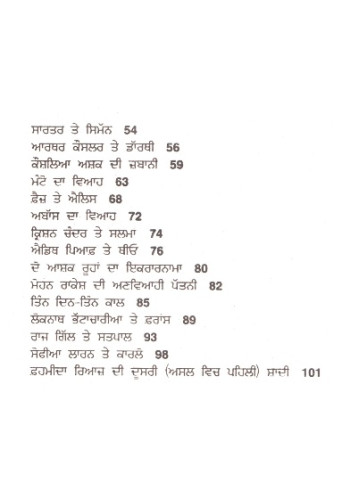 ਸਾਰਤਰ ਤੇ ਸਿਮੋਨ 54
ਆਰਥਰ ਕੌਸਲਰ ਤੇ ਡਾੱਰਥੀ 56
ਕੌਸ਼ਲਿਆ ਅਸ਼ਕ ਦੀ ਜ਼ਬਾਨੀ 59
ਮੰਟੋ ਦਾ ਵਿਆਹ 63
ਫ਼ੈਜ਼ ਤੇ ਐਲਿਸ 68
ਅਬਾੱਸ ਦਾ ਵਿਆਹ 72
ਕ੍ਰਿਸ਼ਨ ਚੰਦਰ ਤੇ ਸਲਮਾ 74
ਐਡਿਥ ਪਿਆਫ਼ ਤੇ ਥੀਓ 76
ਦੋ ਆਸ਼ਕ ਰੂਹਾਂ ਦਾ ਇਕਰਾਰਨਾਮਾ 80
ਮੋਹਨ ਰਾਕੇਸ਼ ਦੀ ਅਣਵਿਆਹੀ ਪੱਤਨੀ 82
ਤਿੰਨ ਦਿਨ-ਤਿੰਨ ਕਾਲ 85
ਲੋਕਨਾਥ ਭੱਟਾਚਾਰੀਆ ਤੇ ਫ਼ਰਾਂਸ 89
ਰਾਜ ਗਿੱਲ ਤੇ ਸਤਪਾਲ 93
ਸੋਫੀਆ ਲਾਰਨ ਤੇ ਕਾਰਲੋ 98
ਫ਼ਹਮੀਦਾ ਰਿਆਜ਼ ਦੀ ਦੂਸਰੀ (ਅਸਲ ਵਿਚ ਪਹਿਲੀ) ਸ਼ਾਦੀ 101